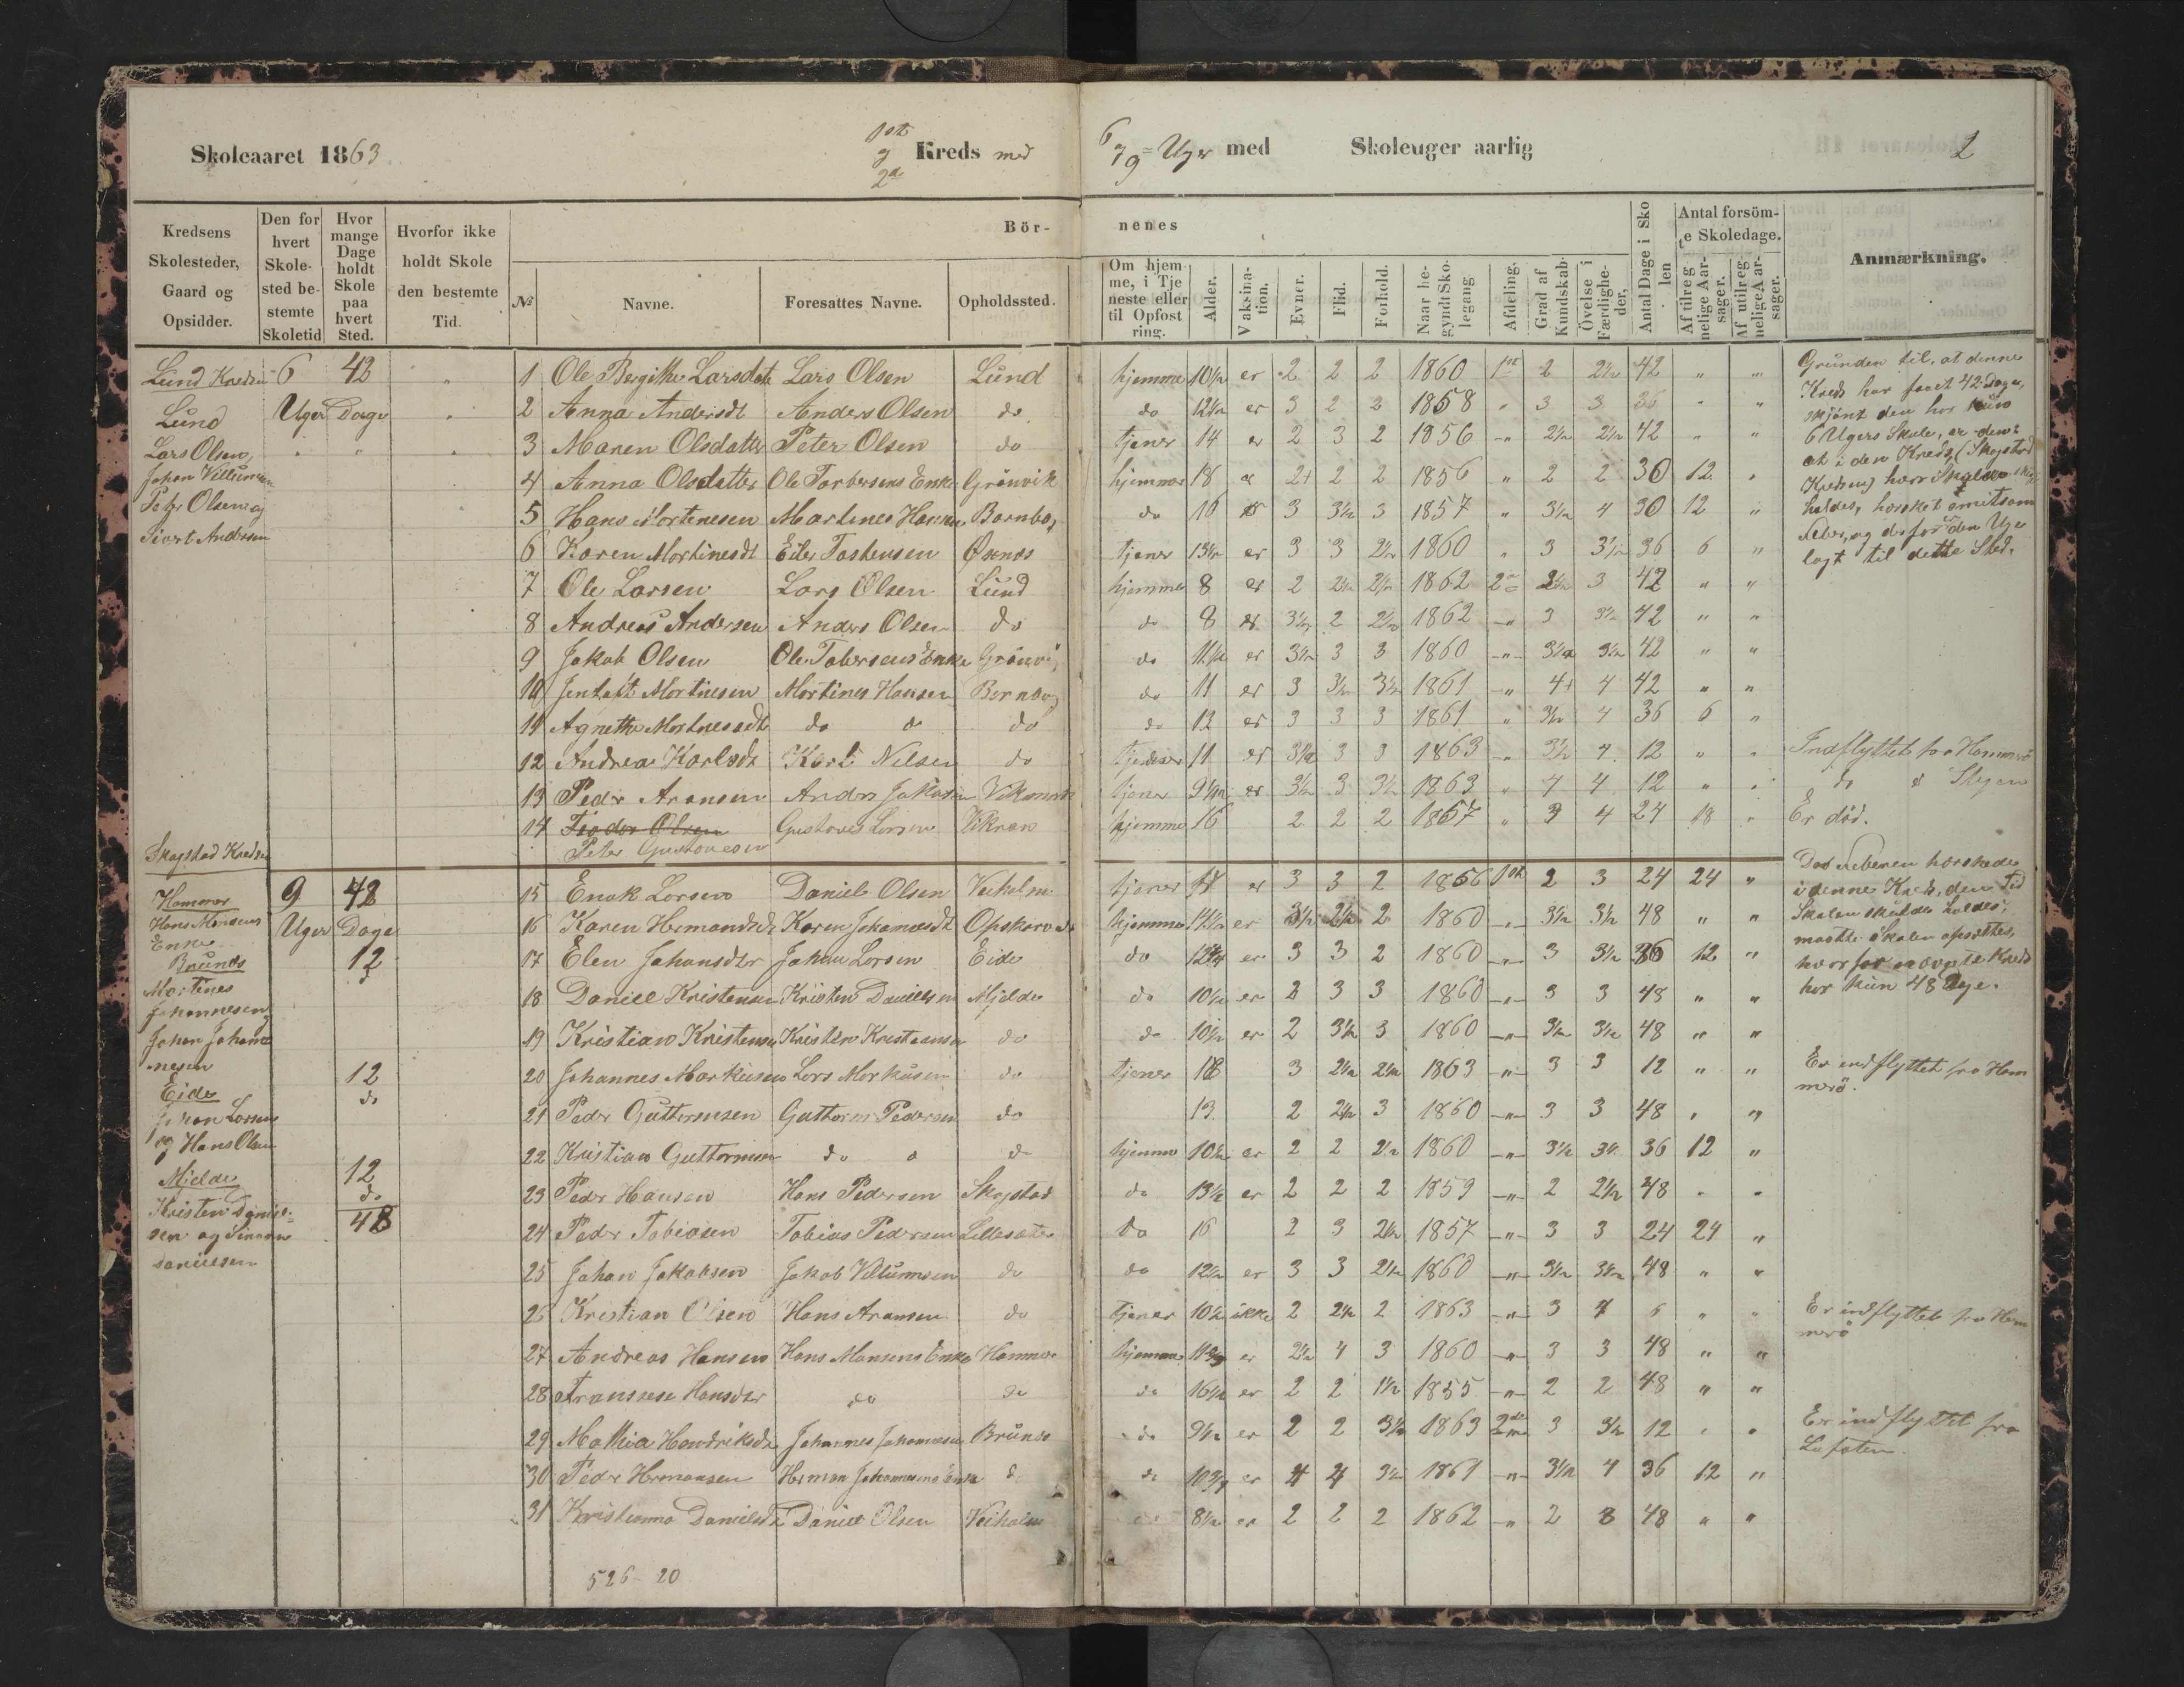 Skoleaaret 1863
1ste
og Kreds med
2de
6
og 9 Uger med Skoleuger aarlig
2
Kredsens Skolesteder, Gaard og Opsidder.
Den for hvert Skolested bestemte Skoletid
Hvor mange Dage holdt Skole paa hvert Sted.
Hvorfor ikke holdt Skole den bestemte Tid.
Börnenes
№
Navne.
Foresattes Navne.
Opholdssted.
Om hjemme, i Tjeneste eller til Opfostring.
Alder.
Vaksination.
Evner.
Flid.
Forhold.
Naar begyndt Skolegang
Afdeling.
Grad af Kundskab
Övelse i Færdigheder,
Antal Dage i Skolen
Antal forsömte Skoledage.
Af tilregnelige Aarsager.
Af utilregnelige Aarsager.
Anmærkning.
Lund Kreds 6 42
Lund Uger Dage
Lars Olsen,
Johan
Peter Olsen og
Siort Andersen
1 Ole Bergithe Larsdatt Lars Olsen Lund hjemme 10½ er 2 2 2 1860 1ste 2 2½ 42 " "
2 Anna Andersdt Anders Olsen do do 12½ er 3 2 2 1858 " 3 3 36 " "
3 Maren Olsdatter Peter Olsen do tjener 14 er 2 3 2 1856 " 2½ 2½ 42 " "
4 Anna Olsdatter Ole Torbersens Enke Grönvik hjemme 18 er 2+ 2 2 1856 " 2 2 30 12 "
5 Hans Mortenesen Martines Hansen do 16 er 3 3½ 3 1857 " 3½ 4 30 12 "
6 Karen Mortinesdt Eiler tjener 13½ er 3 3 2½ 1860 " 3 3½ 36 6 "
7 Ole Larsen Lars Olsen Lund hjemme 8 er 2 2½ 2½ 1862 2de 2½ 3 42 " "
8 Andreas Andersen Anders Olsen do do 8 er 3½ 2 2½ 1862 " 3 3½ 42 " "
9 Jakob Olsen Ole Tobersens Enke Grönvi do 11½ er 3½ 3 3 1860 " 3½ 3½ 42 " "
10 Jentoft Mortinesen Mortines Hansen do 11 er 3 3½ 3½ 1861 " 4+ 4 42 " "
11 Agnethe Mortinesdt do o do do 12 er 3 3 3 1861 " 3½ 4 36 6 "
12 Andrea Karlsdt Karl Nilsen do 11 er 3½ 3 3 1863 " 3½ 4 12 " "
13 Peder Aronsen Anders Jakobsen tjener 9½ er 3½ 3 3½ 1863 " 4 4 12 " "
14 Olsen Gustaves Larsen Vikran hjemme 16 2 2 2 1857 " 3 4 24 18 "
Peter Gustavesen
Grunden til, at denne
Kreds har faaet 42 Dage,
skjönt den har kun
6 Ugers Skole, er den:
at i den Kreds, (Skogstad
Kredsen) hvor Skolen skulde
holdes, hersket smitsom
Feber, og derfor er den Uge
lagt til dette Sted.
Indflyttet fra Hammerö
do o Stegen
Er död.
Skogstad Kredsen
Hammer 9 48
Hans Monsens Uger Dage
Enke
Brunes 12
Mortines
Johannesen
Johan Johannesen
Eide 12
Johan Larsen do
og Hans Olsen
Mjelde 12
Kristen Danielsen og do
Danielsen 48
15 Enok Larsen Daniel Olsen Veiholm tjener 17 er 3 3 2 1856 1ste 2 3 24 24 "
16 Karen Hermandsdt Karen Johannesdt hjemme 14½ er 3½ 2½ 2 1860 " 3½ 3½ 48 " "
17 Elen Johansdtr Johan Larsen Eide do 12¾ er 3 3 2 1860 " 3 3½ 36 12 "
18 Daniel Kristensen Kristen Danielsen Mjelde do 10½ er 2 3 3 1860 " 3 3 48 " "
19 Kristian Kristensen Kristen Kristiansen do do 10½ er 2 3½ 3 1860 " 3½ 3½ 48 " "
20 Johannes Markusen Lars Markusen do tjener 18 3 2½ 2½ 1863 " 3 3 12 " "
21 Peder Guttormsen Guttorm Pedersen do 13 2 2½ 3 1860 " 3 3 48 " "
22 Kristian Guttormsen do o do hjemme 10½ er 2 2 2½ 1860 " 3½ 3½ 36 12 "
23 Peder Hansen Hans Pedersen Skogstad do 13½ er 2 2 2 1859 " 2 2½ 48 " "
24 Peder Tobiasen Tobias Pedersen do 16 2 3 2½ 1857 " 3 3 24 24 "
25 Johan Jakobsen Jakob Villumsen do do 12½ er 3 3 2½ 1860 " 3½ 3½ 48 " "
26 Kristian Olsen Hans Aronsen do tjener 10½ ikke 2 2½ 2 1863 " 3 4 6 " "
27 Andreas Hansen Hans Monsens Enke Hammer hjemme er 2½ 4 3 1860 " 3 3 48 " "
28 Hansdtr do do do 16½ er 2 2 1½ 1855 " 2 2 48 " "
29 Mathia Hendriksdt Johannes Johannesen Brunes do 9½ er 2 2 3½ 1863 2de 3 3½ 12 " "
30 Peder Hermansen Herman Johannesens Enke do do 10¾ er 4 4 3½ 1861 " 3½ 4 36 12 "
31 Kristianna Danielsdt Daniel Olsen Veiholm do 8½ er 2 2 2 1862 " 2 3 48 " "
Da Feberen herskede
i denne Kreds, den Tid
Skolen skulde holdes,
maatte Skolen opsættes,
hvorfor nævnte Kreds
har kun 48 Dage.
Er indflyttet fra Hammerö.
Er indflyttet fra Hammerö
Er indflyttet fra
Lofoten.
526-20